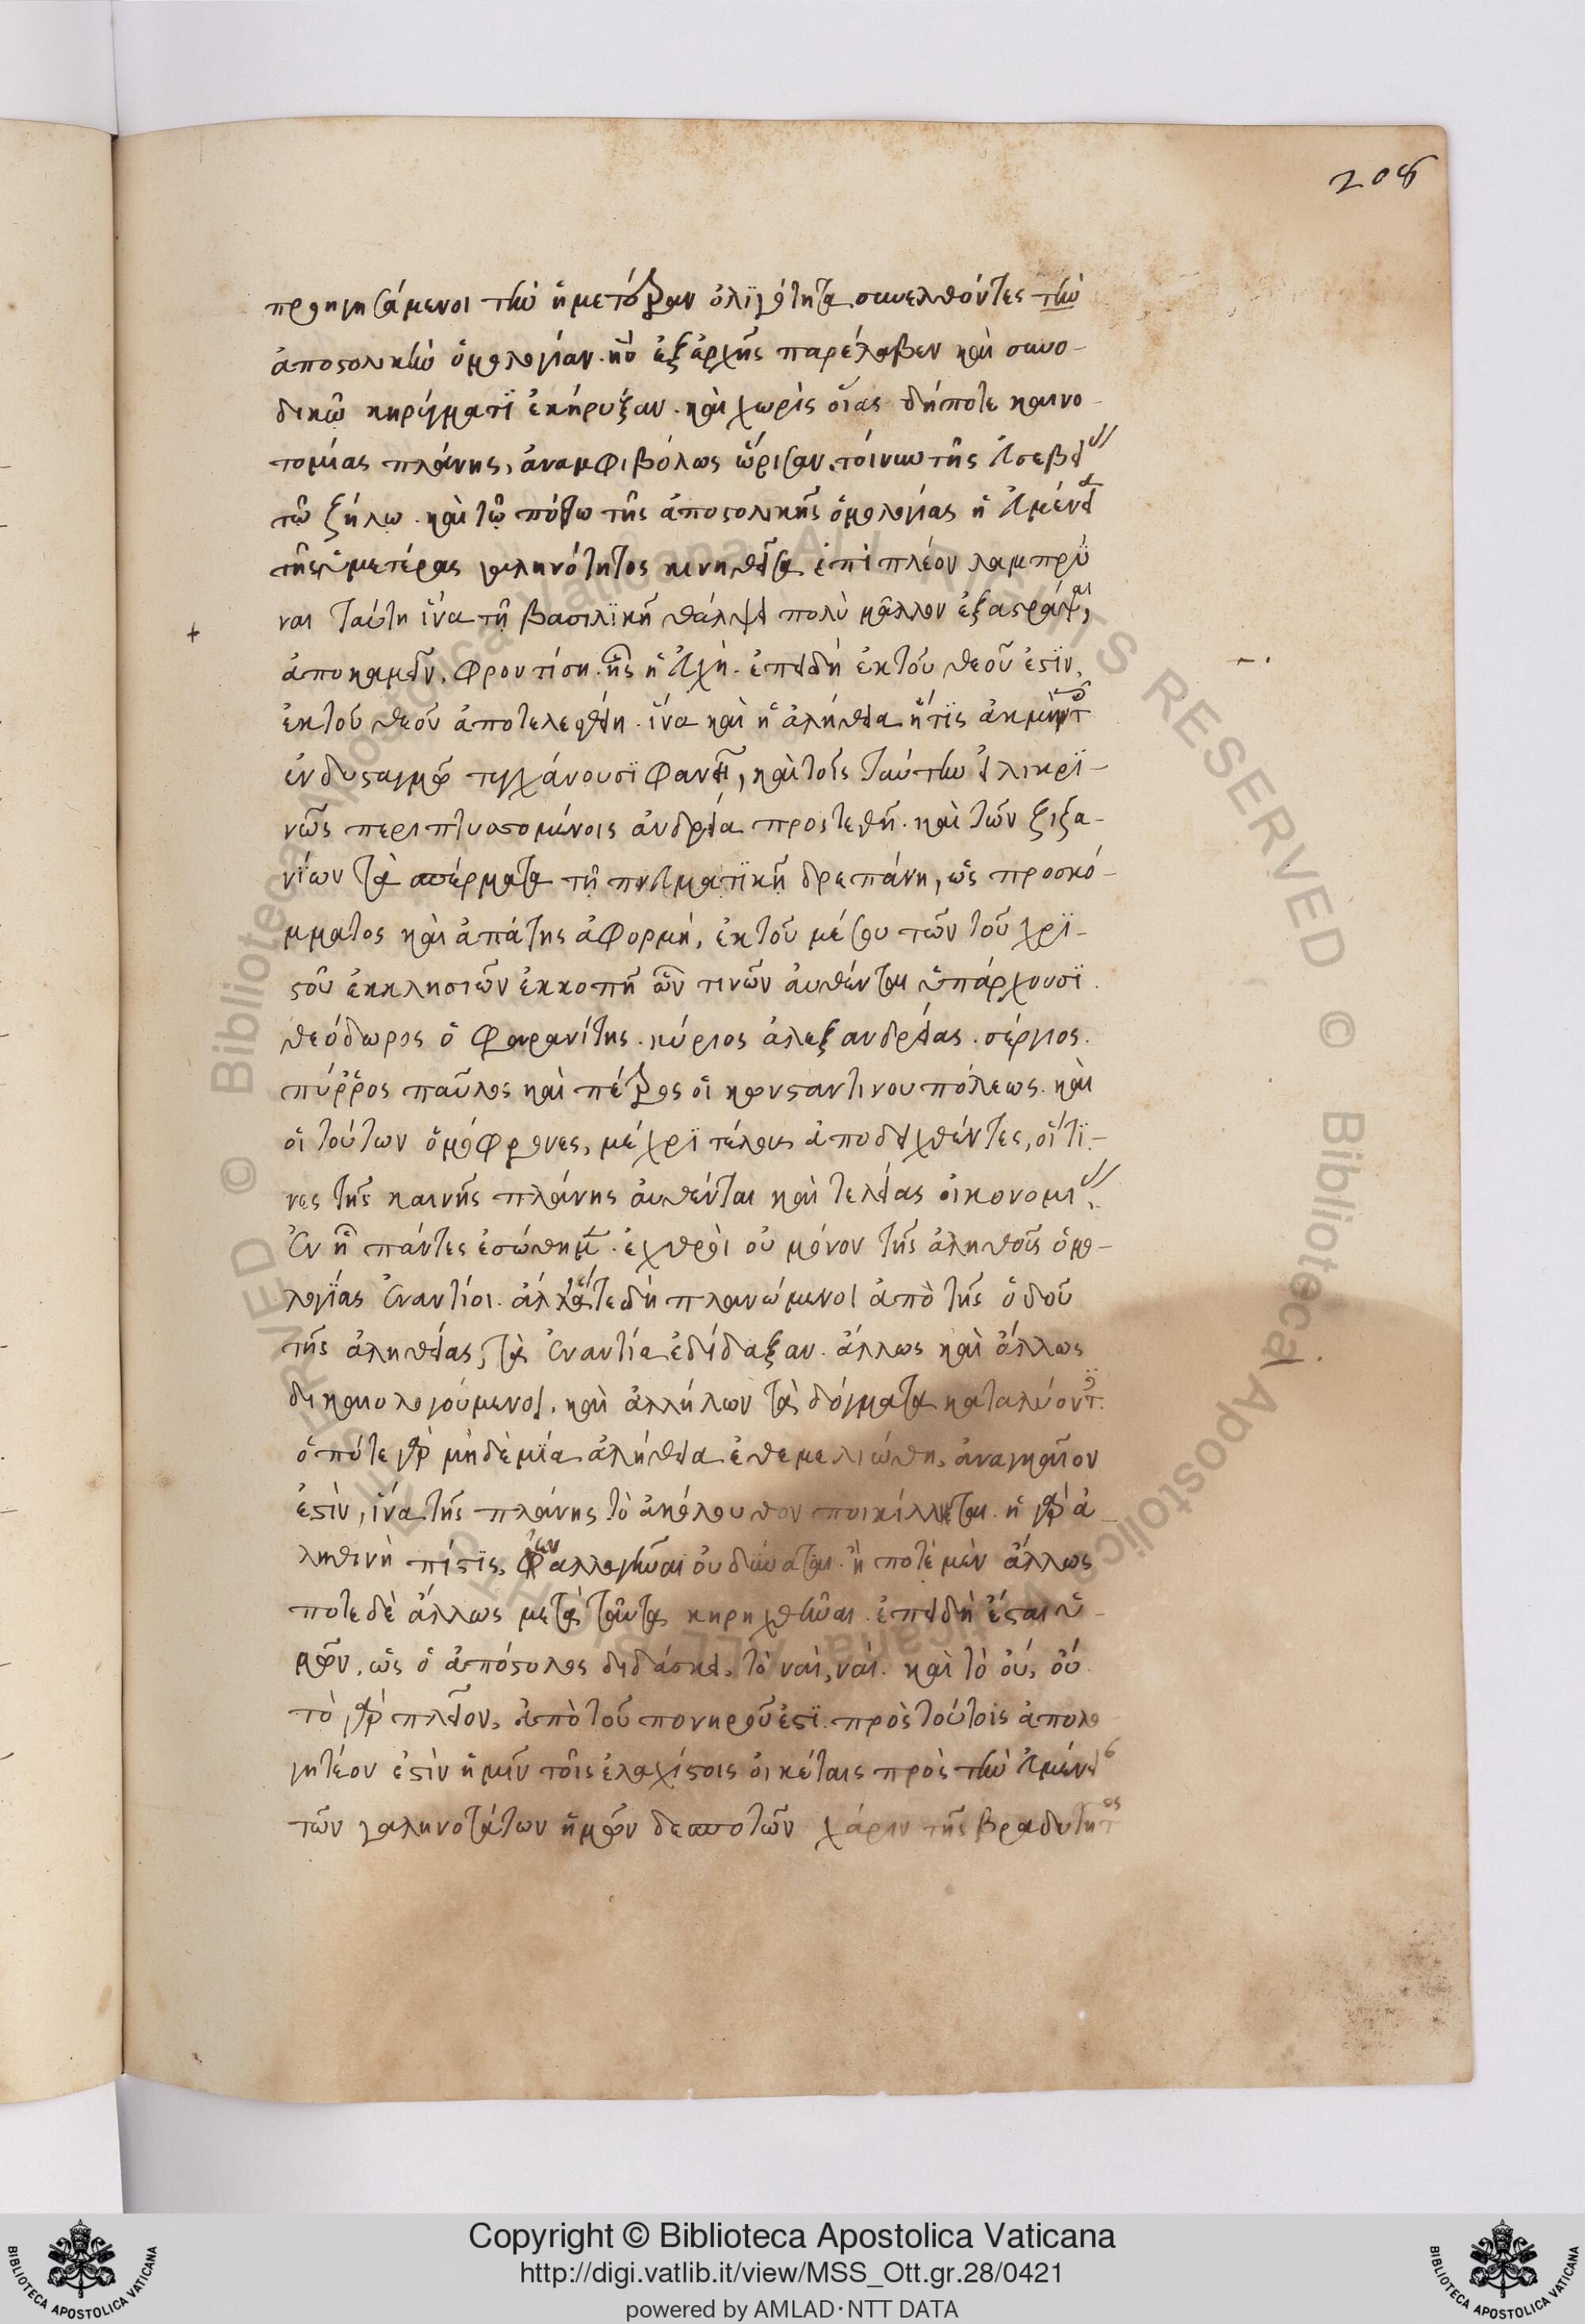 208
προηγησάμενοι τὴν ἡμετέραν ὀλιγότητα συνελθόντες τὴν
ἀποστολικὴν ὁμολογίαν. ἣν ἐξἀρχῆς παρέλαβεν καὶ συνο-
δικῶ κηρύγματϊ ἐκήρυξαν. καὶ χωρὶς οἵας δήποτε καινο-
τομίας πλάνης, ἀναμφιβόλως ὥρισαν. τοίνυν τῆς εὐσεβεί
τῶ ζήλω. καὶ τῶ πόθω τῆς ἀποστολικῆς ὁμολογίας ἡ εὐμένεια
τῆς ὑμετέρας γαληνότητος κινηθεῖσα ἐπὶ πλέον λαμπρῦ
ναι ταύτη ἵνα τῆ βασιλϊκῆ θάλψει πολὺ μᾶλλον ἐξαστράψαι,
ἀποκαμεῖν, φροντίση. ἧς ἡ εὐχὴ. ἐπειδὴ ἐκτοῦ θεοῦ ἐστϊν,
ἐκτοῦ θεοῦ ἀποτελεσθείη. ἵνα καὶ ἡ ἀλήθεια ἥτϊς
ἐνδυσταγμῶ τυγχάνουσϊ φανεῖ, καὶ τοῖς ταύτην εἰλικρϊ-
νῶς περιπτυσσομένοις ἀνδρεία προστεθῆ. καὶ τῶν ζιζα-
νίων τὰ σπέρματα τῆ πνευματϊκῆ δρεπάνη, ὡς προσκό-
μματος καὶ ἀπάτης ἀφορμή, ἐκτοῦ μέσου τῶν τοῦ χρϊ-
στοῦ ἐκκλησιῶν ἐκκοπῆ ὧν τινῶν ἀυθένται ὑπάρχουσϊ.
θεόδωρος ὁ φαρανίτης. κύριος ἀλεξανδρείας. σέργιος.
πύῤῥος παῦλος καὶ πέτρος οἱ κονσταντινουπόλεως. καὶ
οἱ τούτων ὁμόφρονες, μέχρϊ τέλους ἀποδειχθέντες, οἵτϊ-
νες τῆς καινῆς πλάνης ἀυθένται καὶ τελείας οἰκονομι
ἐν ἧ πάντες ἐσώθημεν. ἐχθροὶ οὐ μόνον τῆς ἀληθοῦς ὁμο-
λογίας ἐναντίοι. πλανώμενοι ἀπὸ τῆς ὁδοῦ
τῆς ἀληθείας, τὰ ἐναντία ἐδίδαξαν. ἄλλως καὶ ἄλλως
δικαιολογούμενοι. καὶ ἀλλήλων τὰ δόγματα καταλύοντες.
ὁπότε γὰρ μὴδὲμϊα ἀλήθεια ἐθεμελιώθη, ἀναγκαῖον
ἐστὶν, ἵνα τῆς πλάνης τὸ ἀκόλουθον ποικίλληται. ἡ γὰρ ἀ-
ληθινὴ πίστϊς, ἐναλλαγῆναι οὐ δύναται. ἢ ποτὲ μὲν ἄλλως
ποτεδὲ ἄλλως μετὰ ταῦτα κηρηχθῆναι. ἐπειδὴ ἔσται ὑ-
μῶν, ὡς ὁ ἀπόστολος διδάσκει, τὸ ναὶ, ναί. καὶ τὸ οὐ, οὔ.
τὸ γὰρ πλεῖον, ἀπὸ τοῦ πονηροῦ ἐστϊ. πρὸς τούτοις ἀπολο
γητέον ἐστὶν ἡμῖν τοῖς ἐλαχίστοις οἰκέταις πρὸς τὴν εὐμένει
τῶν γαληνοτάτων ἡμῶν δεσποτῶν χάριν τῆς βραδυτῆτος
Copyright © Biblioteca Apostolica Vaticana
http://digi.vatlib.it/view/MSS_Ott.gr.28/0421
powered by AMLAD·NTT DATA